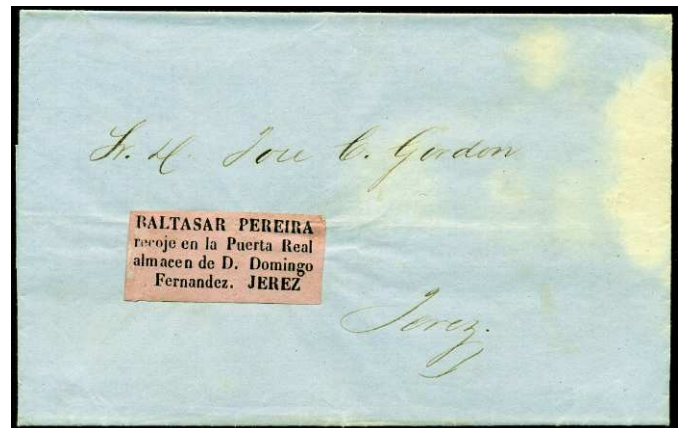 Sr. D. Jose C. Gordon
BALTASAR PEREIRA
recoje en la Puerta Real
almacen de D. Domingo
Fernandez. JEREZ
Jerez.